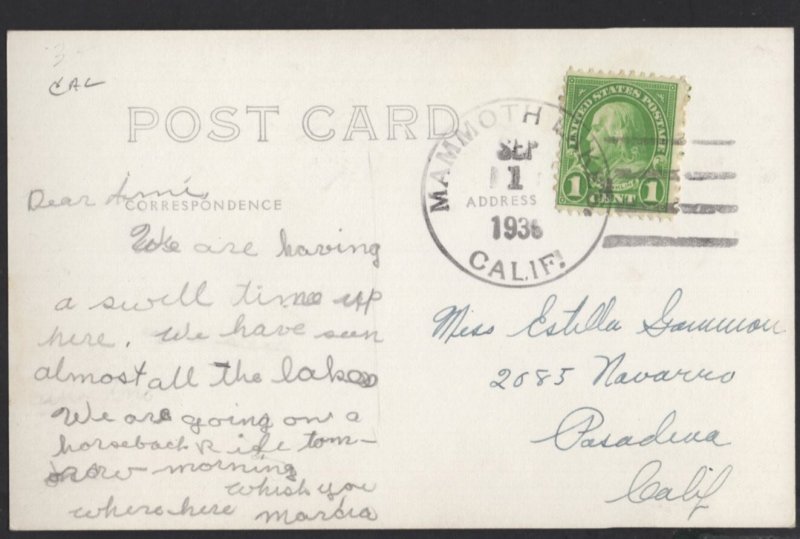 CAL
POST CARD
MAMMOTH
SEP
1
1936
CALIF.
UNITED STATES POSTAGE
1 CENT 1
Dear
CORRESPONDENCE
ADDRESS
We are having
a swell time up
here. We have seen
almost all the lakes
We are going on a
horseback ride tom-
orow morning
whish you
where here Marcia
Miss Estella Gammon
2085 Navarro
Pasadena
Calif